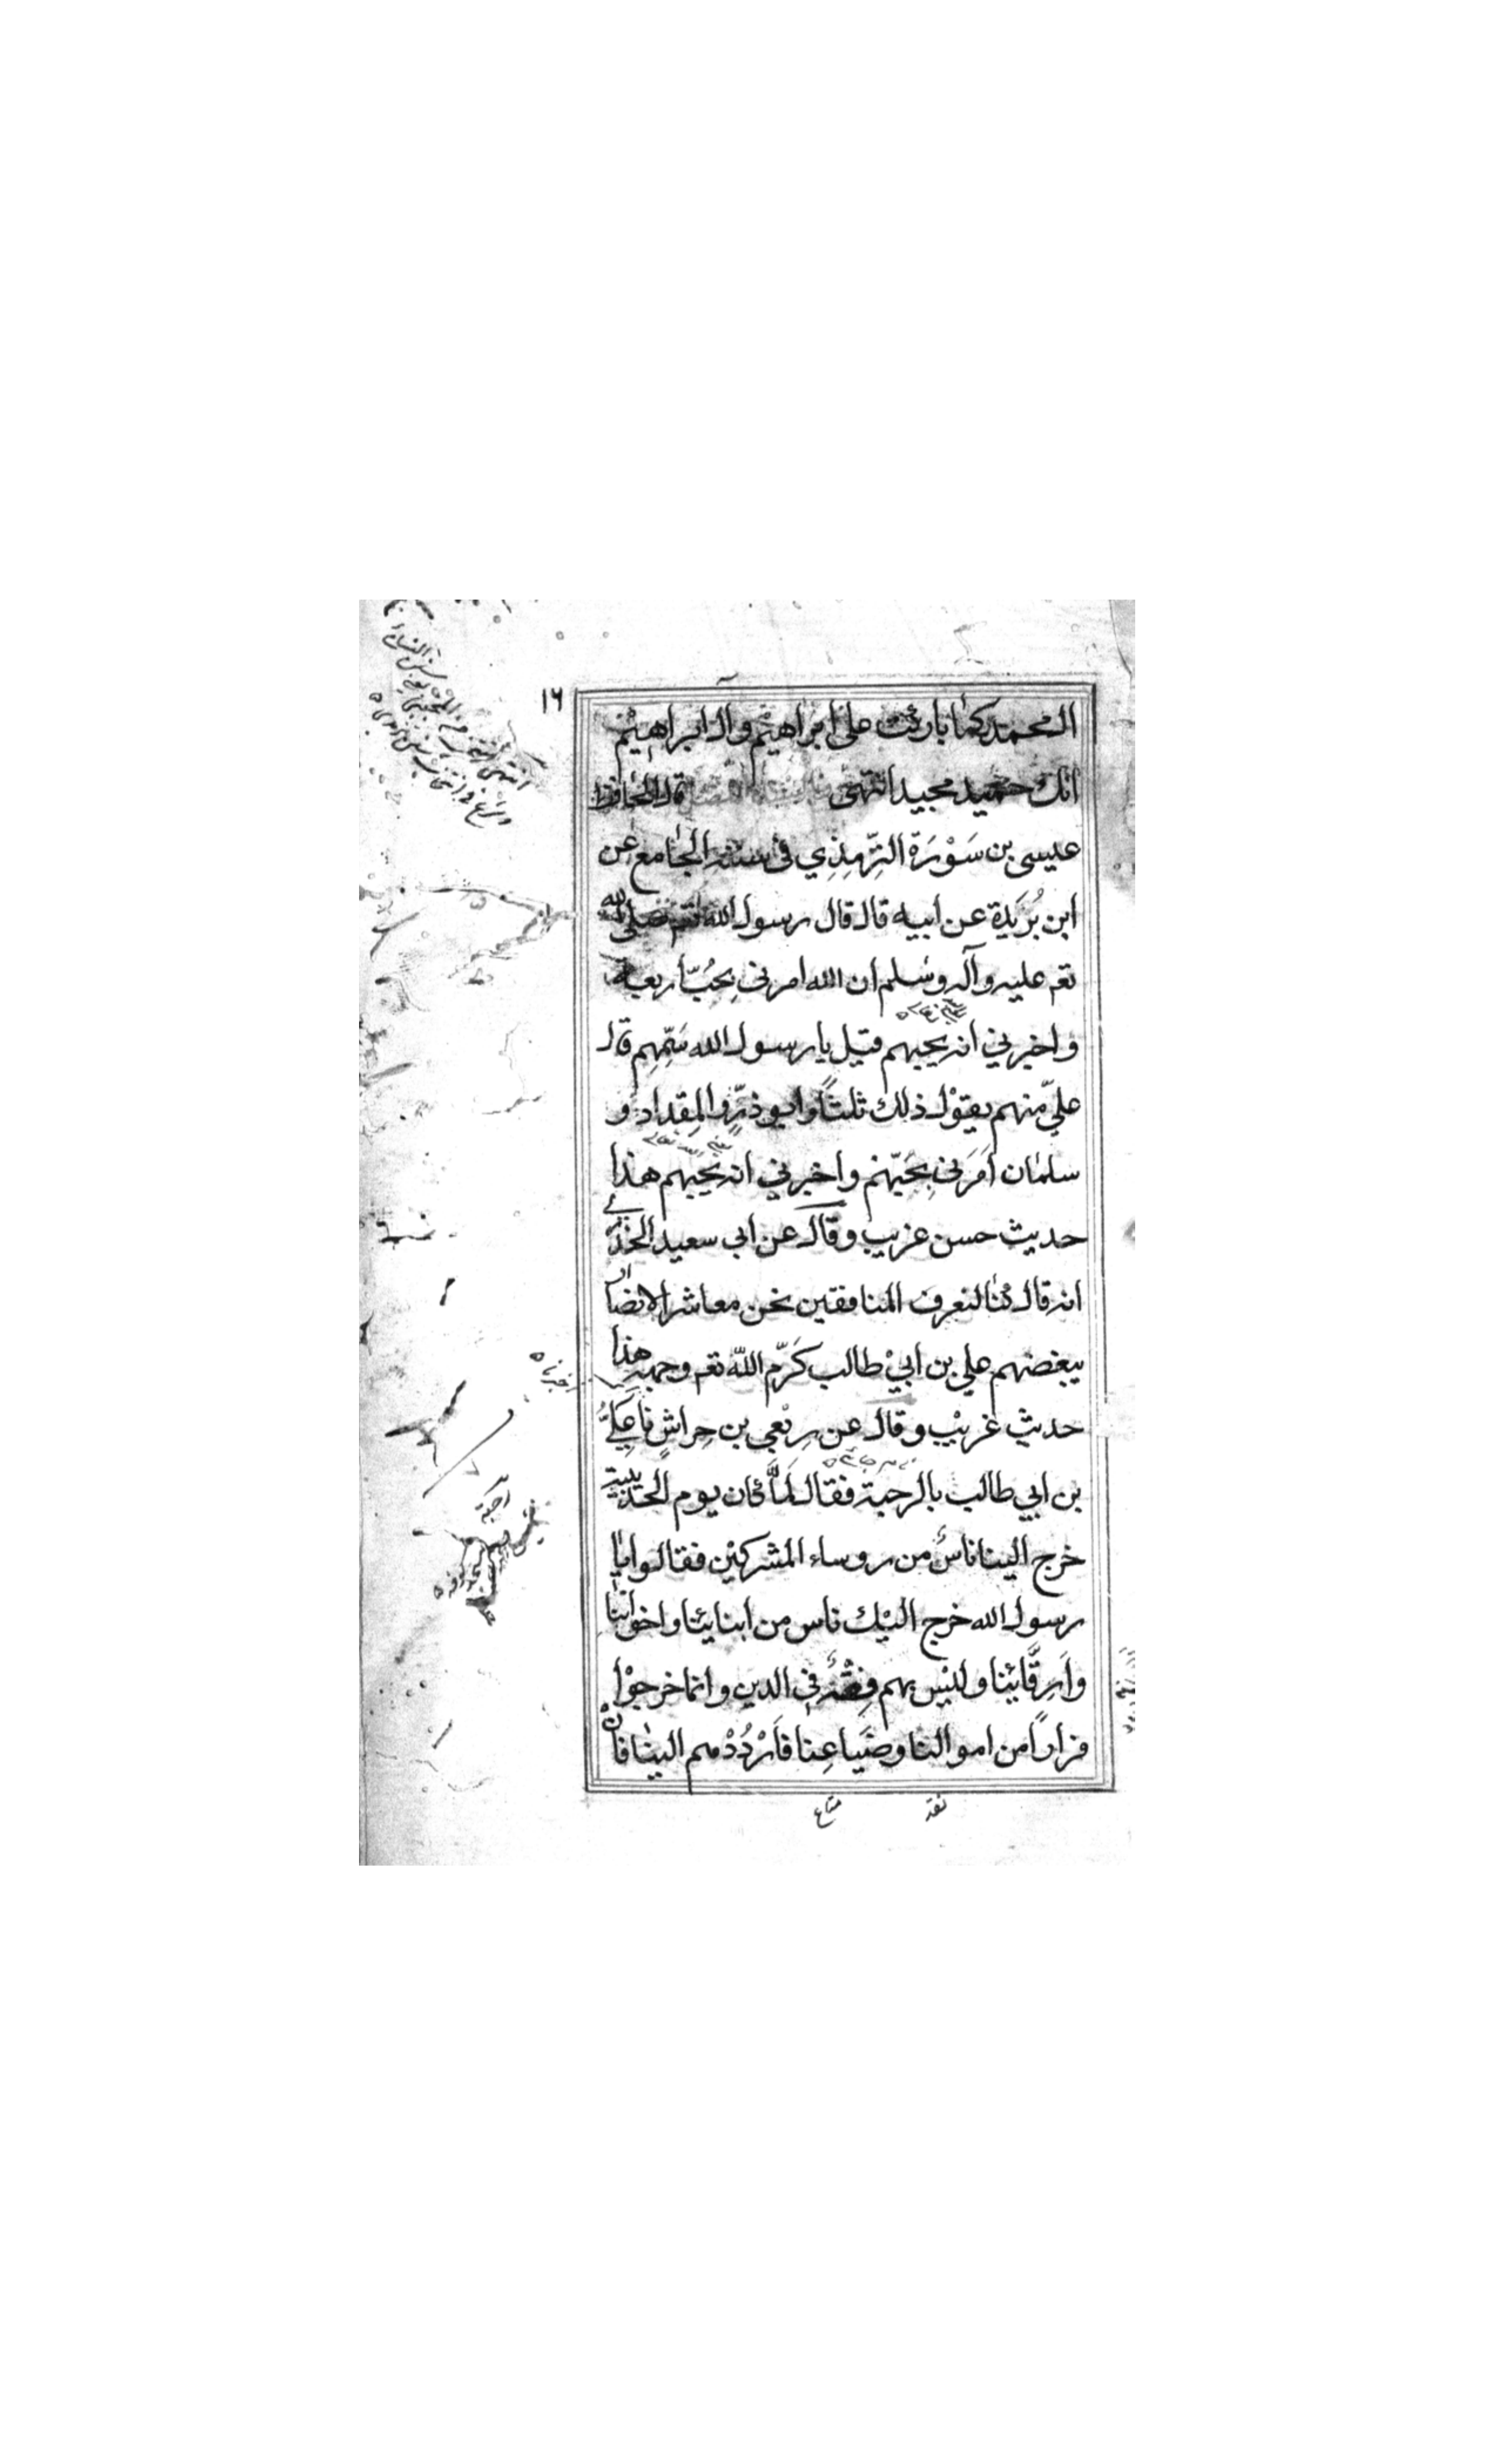 ١٦
ال محمد كما باركت على ابراهيم وال ابراهيم
انك حميد مجيد انتهى قال الحافظ
عيسى بن سَوْرَة التِّرْمِذِي في سننه الجامع عن
ابن بُرَيْدَة عن ابيه قال قال رسول الله تعم صلى الله
تعم عليه وآله وسلم ان الله امرني بِحُبّ اربعة
واخبرني انه يحبهم قيل يا رسول الله سَمِّهِم قال
عليّ منهم يقول ذلك ثلثًا وابو ذرّ والمِقداد و
سلمان اَمَرَني بِحُبّهم واخبرني انه يُحِبُّهم هذا
حديث حسن غريب وقال عن ابي سعيد الخدري
انه قال كُنّا لنعرف المنافقين نحن معاشر الانصار
ببغضهم علي بن ابي طالب كَرّم اللّه تعم وجهه هذا
حديث غريب وقال عن رِبْعي بن حِراشٍ نا عَلِيُّ
بن ابي طالب بالرحبة فقال لمّا كان يوم الحديبية
خرج الينا ناسٌ من روساء المشركين فقالوا يا
رسول الله خرج اليك ناس من ابنائنا واخواننا
واَرِقَّائِنا وليس بهم فِقْهٌ في الدين وانما خرجوا
فرارًا من اموالنا وضِيَاعِنا فَارْدُدْهم الينا فان
نقد
متاع
رحبة